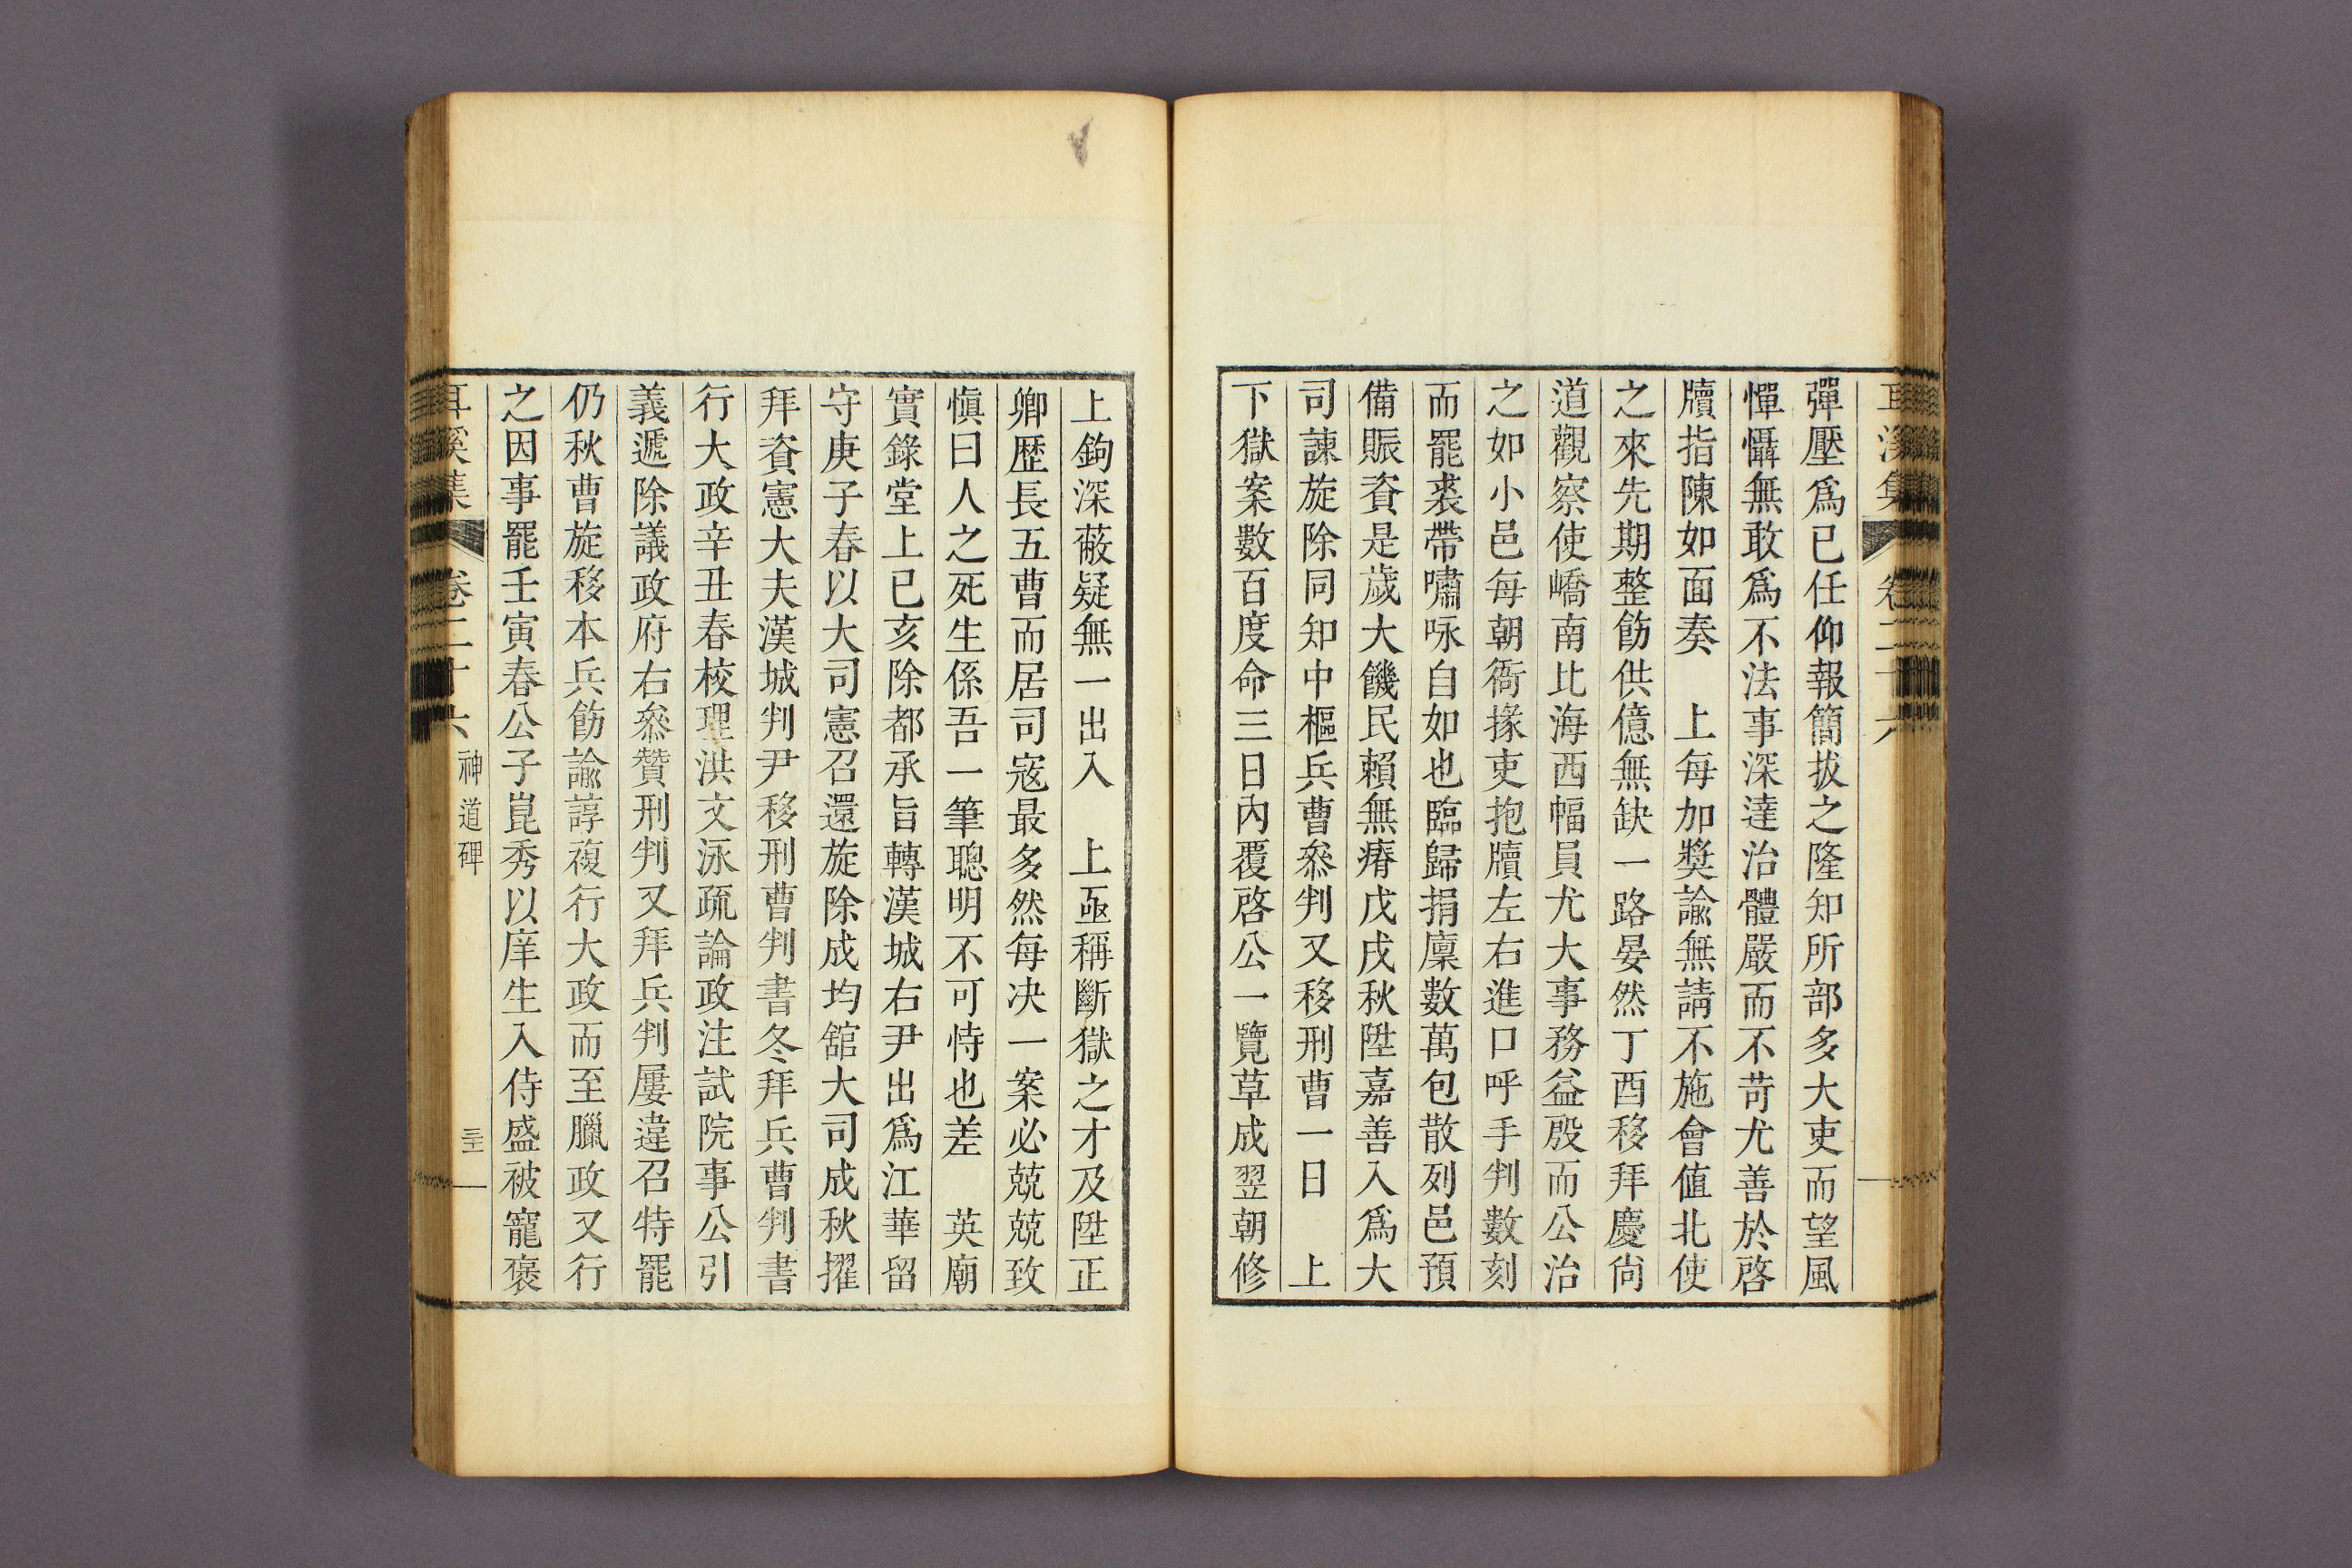 耳溪集 卷二十六
彈壓爲已任仰報簡拔之隆知所部多大吏而望風
憚懾無敢爲不法事深達治體嚴而不苛尤善於啓
牘指陳如面奏　上每加奬諭無請不施會値北使
之來先期整飭供億無缺一路晏然丁酉移拜慶尙
道觀察使嶠南比海西幅員尤大事務益殷而公治
之如小邑每朝衙掾吏抱牘左右進口呼手判數刻
而罷裘帶嘯咏自如也臨歸捐廩數萬包散列邑預
備賑資是歲大饑民賴無瘠戊戌秋陞嘉善入爲大
司諫旋除同知中樞兵曹叅判又移刑曹一日　上
下獄案數百度命三日內覆啓公一覽草成翌朝修
上鉤深蔽疑無一出入　上亟稱斷獄之才及陞正
卿歷長五曹而居司寇最多然每决一案必兢兢致
愼曰人之死生係吾一筆聰明不可恃也差　英廟
實錄堂上已亥除都承旨轉漢城右尹出爲江華留
守庚子春以大司憲召還旋除成均舘大司成秋擢
拜資憲大夫漢城判尹移刑曹判書冬拜兵曹判書
行大政辛丑春校理洪文泳疏論政注試院事公引
義遞除議政府右叅贊刑判又拜兵判屢違召特罷
仍秋曹旋移本兵飭諭諄複行大政而至臘政又行
之因事罷壬寅春公子崑秀以庠生入侍盛被寵褒
耳溪集 卷二十六 神道碑